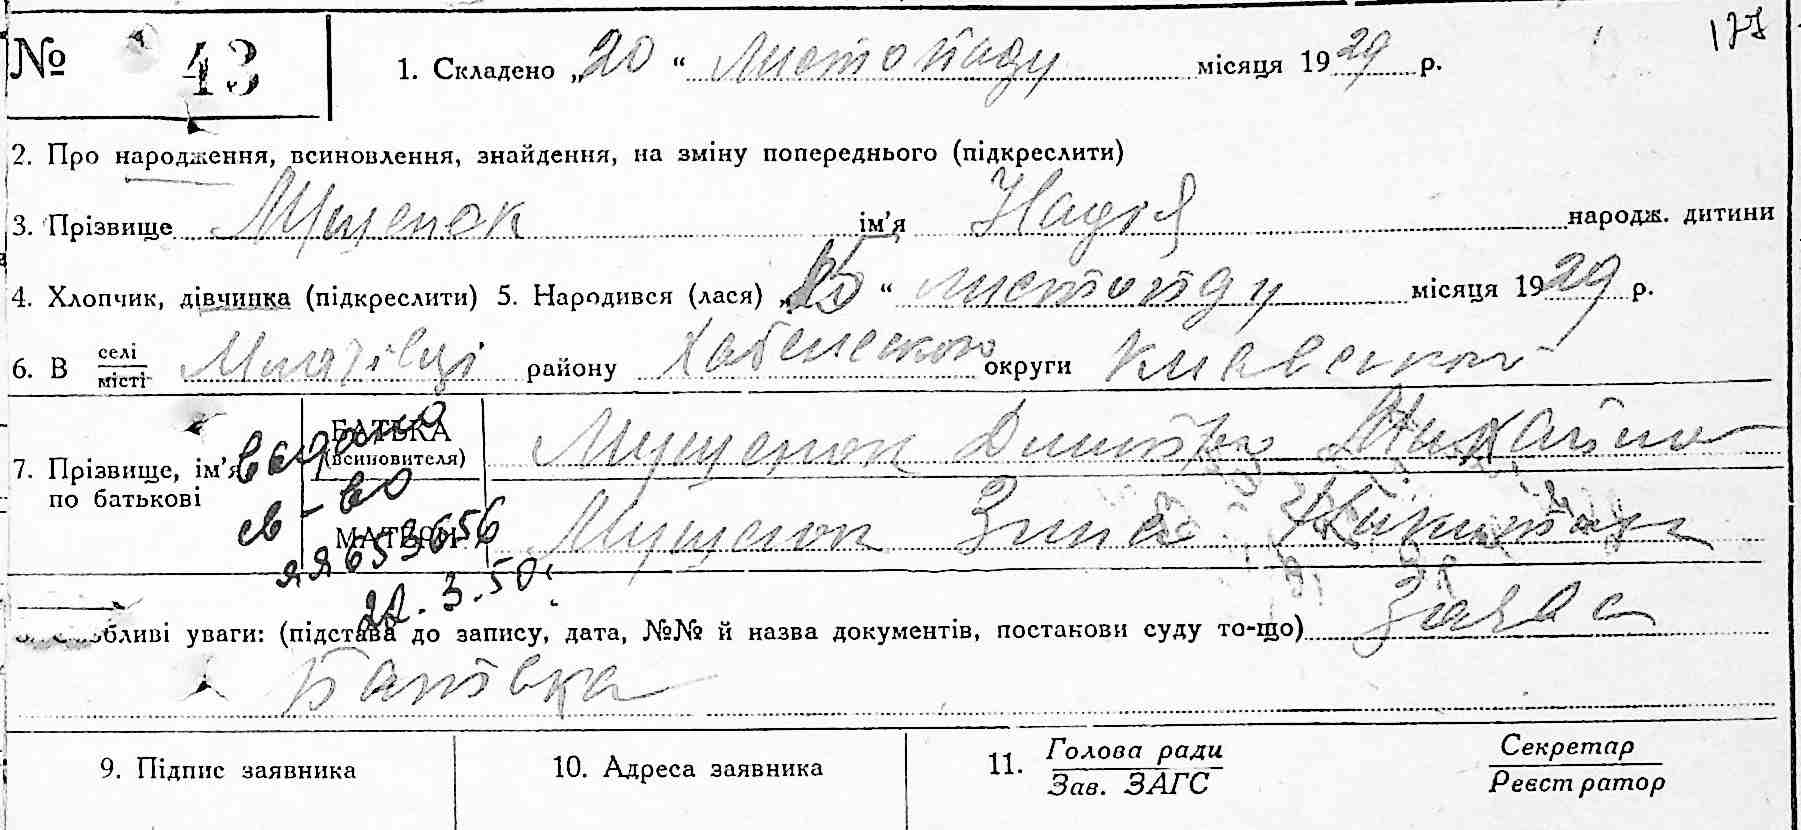 № 43 1. Складено „20“ листопаду місяця 1929 р. 177
2. Про народження, всиновлення, знайдення, на зміну попереднього (підкреслити)
3. Прізвище Мищенок ім’я Надія народж. дитини
4. Хлопчик, дівчинка (підкреслити) 5. Народився (лася) „ “ листопаду місяця 1929 р.
6. В селі/місті району Хабенського округи Київської
7. Прізвище, ім’я по батькові
БАТЬКА (всиновителя) Мищенок Дмитро Михайло
МАТЕРИ Мищенок Зинька
видано
св-во
ЯЯ 653656
22.3.50.
бливі уваги: (підстава до запису, дата, №№ й назва документів, постанови суду то-що) Заява
Батівка
9. Підпис заявника 10. Адреса заявника 11. Голова ради/Зав. ЗАГС Секретар/Реєстратор